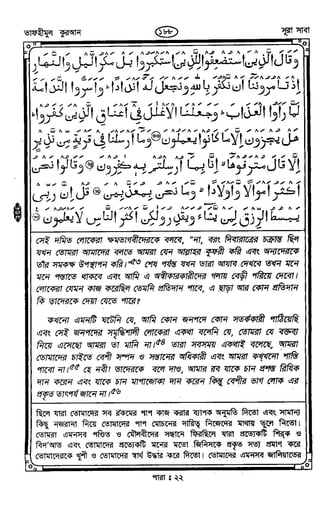 তাফহীমুল কুরআন
১৮৮
সূরা সাবা
وَقَالَ الَّذِينَ اسْتُضْعِفُوا لِلَّذِينَ اسْتَكْبَرُوا بَلْ مَكْرُ الَّيْلِ وَالنَّهَارِ
إِذْ تَأْمُرُونَنَا أَنْ نَكْفُرَ بِاللَّهِ وَنَجْعَلَ لَهُ أَنْدَادًا وَأَسَرُّوا النَّدَامَةَ
لَمَّا رَأَوُا الْعَذَابَ وَجَعَلْنَا الْأَغْلٰلَ فِي أَعْنَاقِ الَّذِينَ كَفَرُوا
هَلْ يُجْزَوْنَ إِلَّا مَا كَانُوا يَعْمَلُونَ ۝ وَمَا أَرْسَلْنَا فِي قَرْيَةٍ مِنْ نَذِيرٍ
إِلَّا قَالَ مُتْرَفُوهَا إِنَّا بِمَا أُرْسِلْتُمْ بِهِ كٰفِرُونَ ۝ وَقَالُوا نَحْنُ
أَكْثَرُ أَمْوَالًا وَأَوْلَادًا وَمَا نَحْنُ بِمُعَذَّبِينَ ۝ قُلْ إِنَّ رَبِّي
يَبْسُطُ الرِّزْقَ لِمَنْ يَشَاءُ وَيَقْدِرُ وَلٰكِنَّ أَكْثَرَ النَّاسِ لَا يَعْلَمُونَ ۝
সেই দমিত লোকেরা ক্ষমতাগর্বীদেরকে বলবে, "না, বরং দিবারাত্রের চক্রান্ত ছিল
যখন তোমরা আমাদের বলতে আমরা যেন আল্লাহর কুফরী করি এবং অন্যদেরকে
তাঁর সমকক্ষ উপস্থাপন করি।৫৩ শেষ পর্যন্ত যখন তারা আযাব দেখবে তখন মনে
মনে পস্তাতে থাকবে এবং আমি এ অস্বীকারকারীদের গলায় বেড়ী পরিয়ে দেবো।
লোকেরা যেমন কাজ করেছিল তেমনি প্রতিদান পাবে, এ ছাড়া আর কোন প্রতিদান
কি তাদেরকে দেয়া যেতে পারে।
কখনো এমনটি ঘটেনি যে, আমি কোন জনপদে কোন সতর্ককারী পাঠিয়েছি
এবং সেই জনপদের সমৃদ্ধিশালী লোকেরা একথা বলেনি যে, তোমরা যে বক্তব্য
নিয়ে এসেছো আমরা তা মানি না।৫৪ তারা সবসময় একথাই বলেছে, আমরা
তোমাদের চাইতে বেশী সম্পদ ও সন্তানের অধিকারী এবং আমরা কখখনো শাস্তি
পাবো না।৫৫ হে নবী! তাদেরকে বলে দাও, আমার রব যাকে চান প্রশস্ত রিযিক
দান করেন এবং যাকে চান মাপাজোকা দান করেন কিন্তু বেশীর ভাগ লোক এর
প্রকৃত তাৎপর্য জানে না।৫৬
ছিলে যারা তোমাদের সব রকমের পাপ কাজ করার ব্যাপক অনুমতি দিতো এবং সামান্য
কিছু নজরানা নিয়ে তোমাদের পাপ মোচনের দায়িত্ব নিজেদের মাথায় তুলে নিতো।
তোমরা এমনসব পণ্ডিত ও মৌলবীদের সন্ধানে ফিরছিলে যারা প্রত্যেকটি শিরক ও
বিদ'আত এবং তোমাদের প্রত্যেকটি মনের মতো জিনিসকে প্রকৃত সত্য প্রমাণ করে
তোমাদেরকে খুশী ও তোমাদের স্বার্থ উদ্ধার করে দিতো। তোমাদের এমনসব জালিয়াতের
পারা : ২২